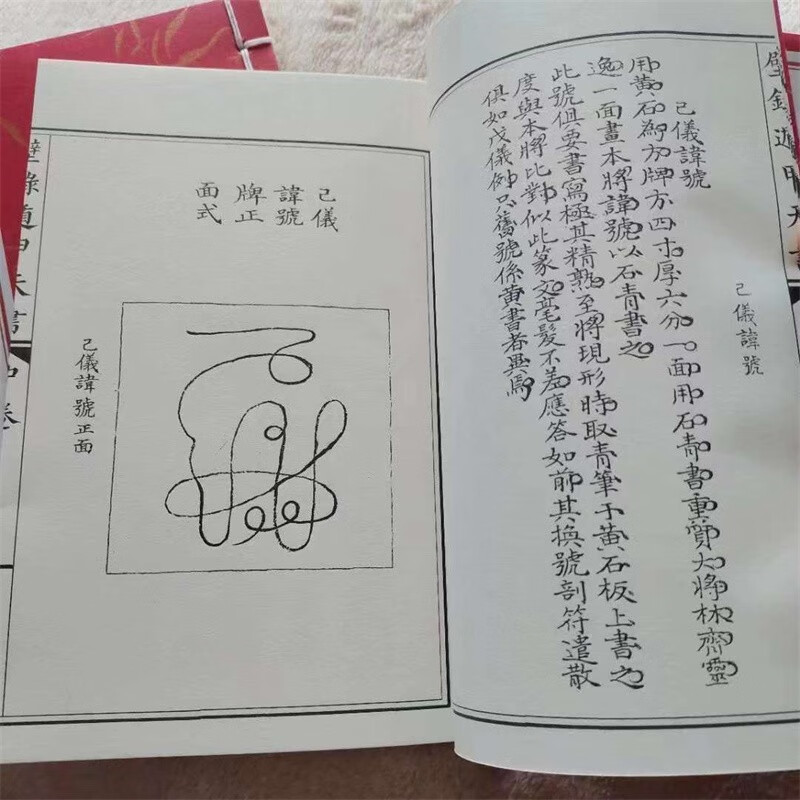 壁錄遁甲天書
己儀諱號
己儀諱號
用黃石為方牌方四寸厚六分一面用石青書重質大將林齊靈
逸一面畫本將諱號以石青書之
此號俱要書寫極其精熟至將現形時取青筆于黃石板上書之
度與本將比對似此篆文毫髮不差應答如前其換號剖符遣散
俱如戊儀例只舊號係黃書者異焉
己儀
諱號
牌正
面式
己儀諱號正面
壁錄遁甲天書
中卷